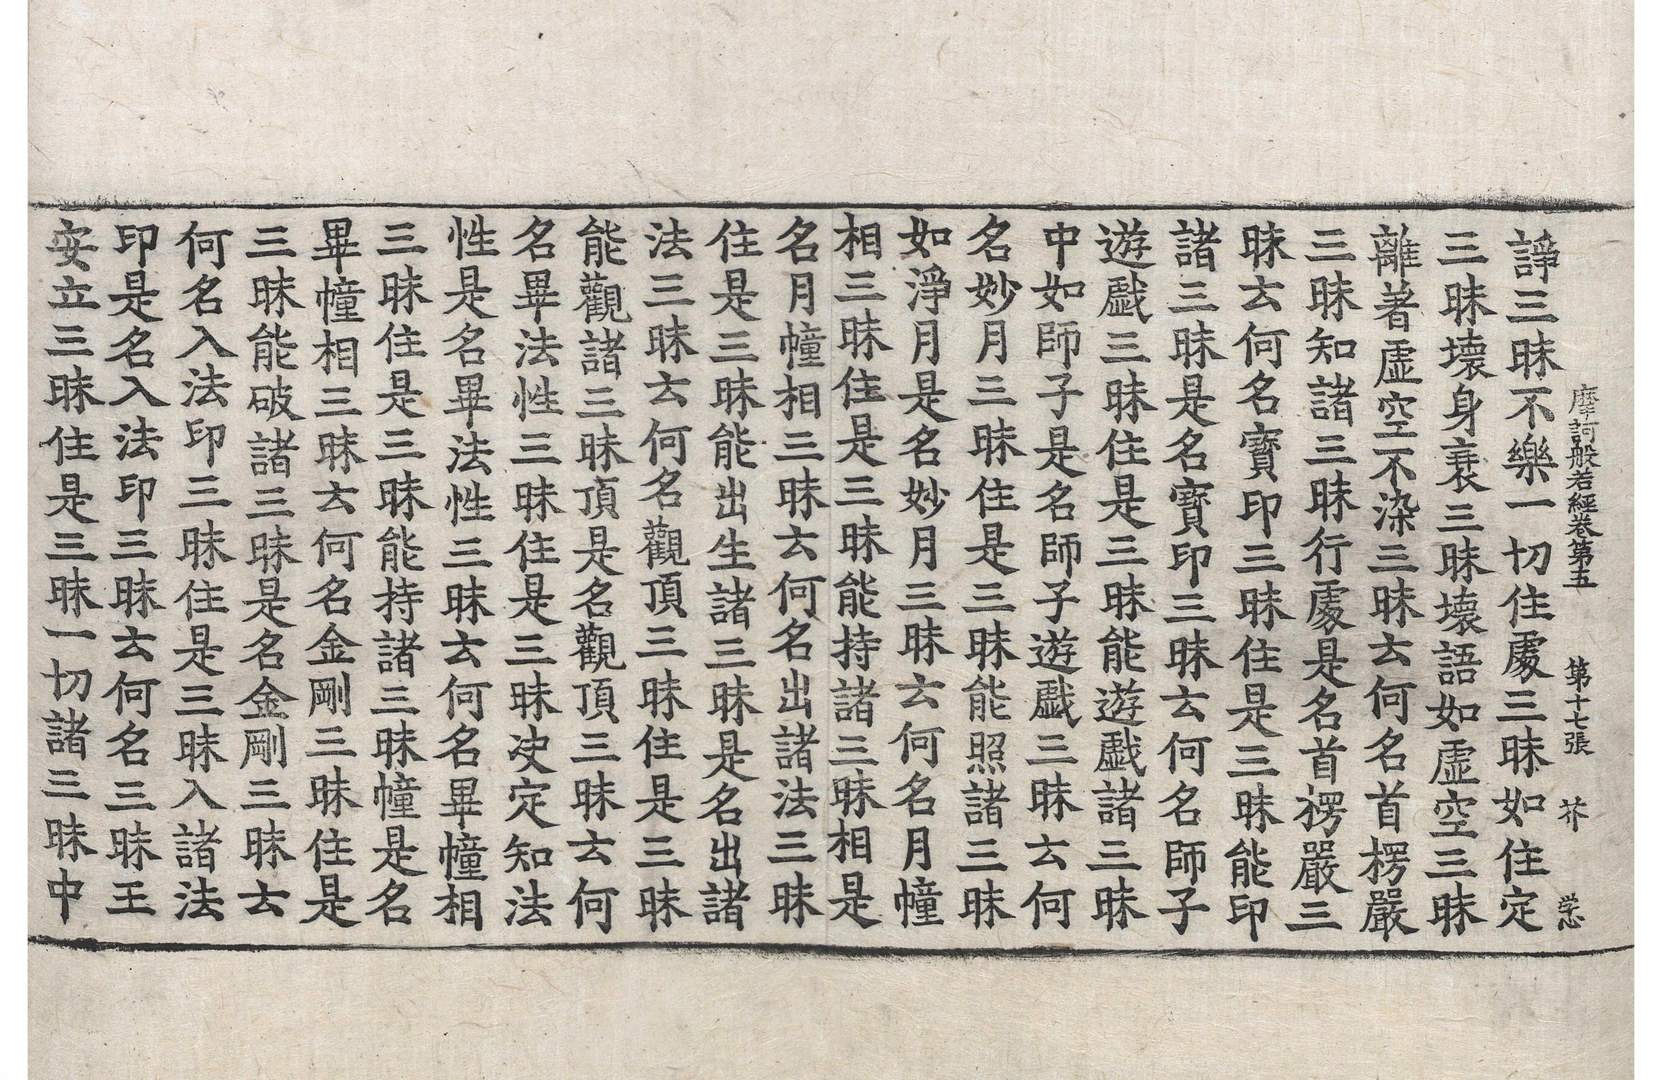 摩訶般若經卷第五 第十七張 芥
諍三昧不樂一切住處三昧如住定
三昧壞身衰三昧壞語如虛空三昧
離著虛空不染三昧云何名首楞嚴
三昧知諸三昧行處是名首楞嚴三
昧云何名寶印三昧住是三昧能印
諸三昧是名寶印三昧云何名師子
遊戲三昧住是三昧能遊戲諸三昧
中如師子是名師子遊戲三昧云何
名妙月三昧住是三昧能照諸三昧
如淨月是名妙月三昧云何名月幢
相三昧住是三昧能持諸三昧相是
名月幢相三昧云何名出諸法三昧
住是三昧能出生諸三昧是名出諸
法三昧云何名觀頂三昧住是三昧
能觀諸三昧頂是名觀頂三昧云何
名畢法性三昧住是三昧決定知法
性是名畢法性三昧云何名畢幢相
三昧住是三昧能持諸三昧幢是名
畢幢相三昧云何名金剛三昧住是
三昧能破諸三昧是名金剛三昧云
何名入法印三昧住是三昧入諸法
印是名入法印三昧云何名三昧王
安立三昧住是三昧一切諸三昧中